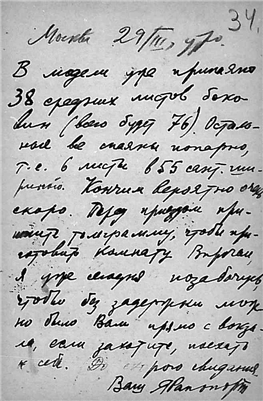 34.
Москва 29/III, утро.
В модели уже припаяно
38 средних листов боко-
вин (всего будет 76). Осталь-
ные все спаяны попарно,
т.е. 6 листы в 55 сант. ши-
рины. Кончим вероятно очень
скоро. Перед приездом при-
шлите телеграмму, чтобы при-
готовить комнату. Впрочем
я уже сегодня позабочусь
чтобы без задержки мож-
но было Вам прямо с вокза-
ла, если захотите, поехать
к себе. До скорого свидания.
Ваш Я Рапопорт